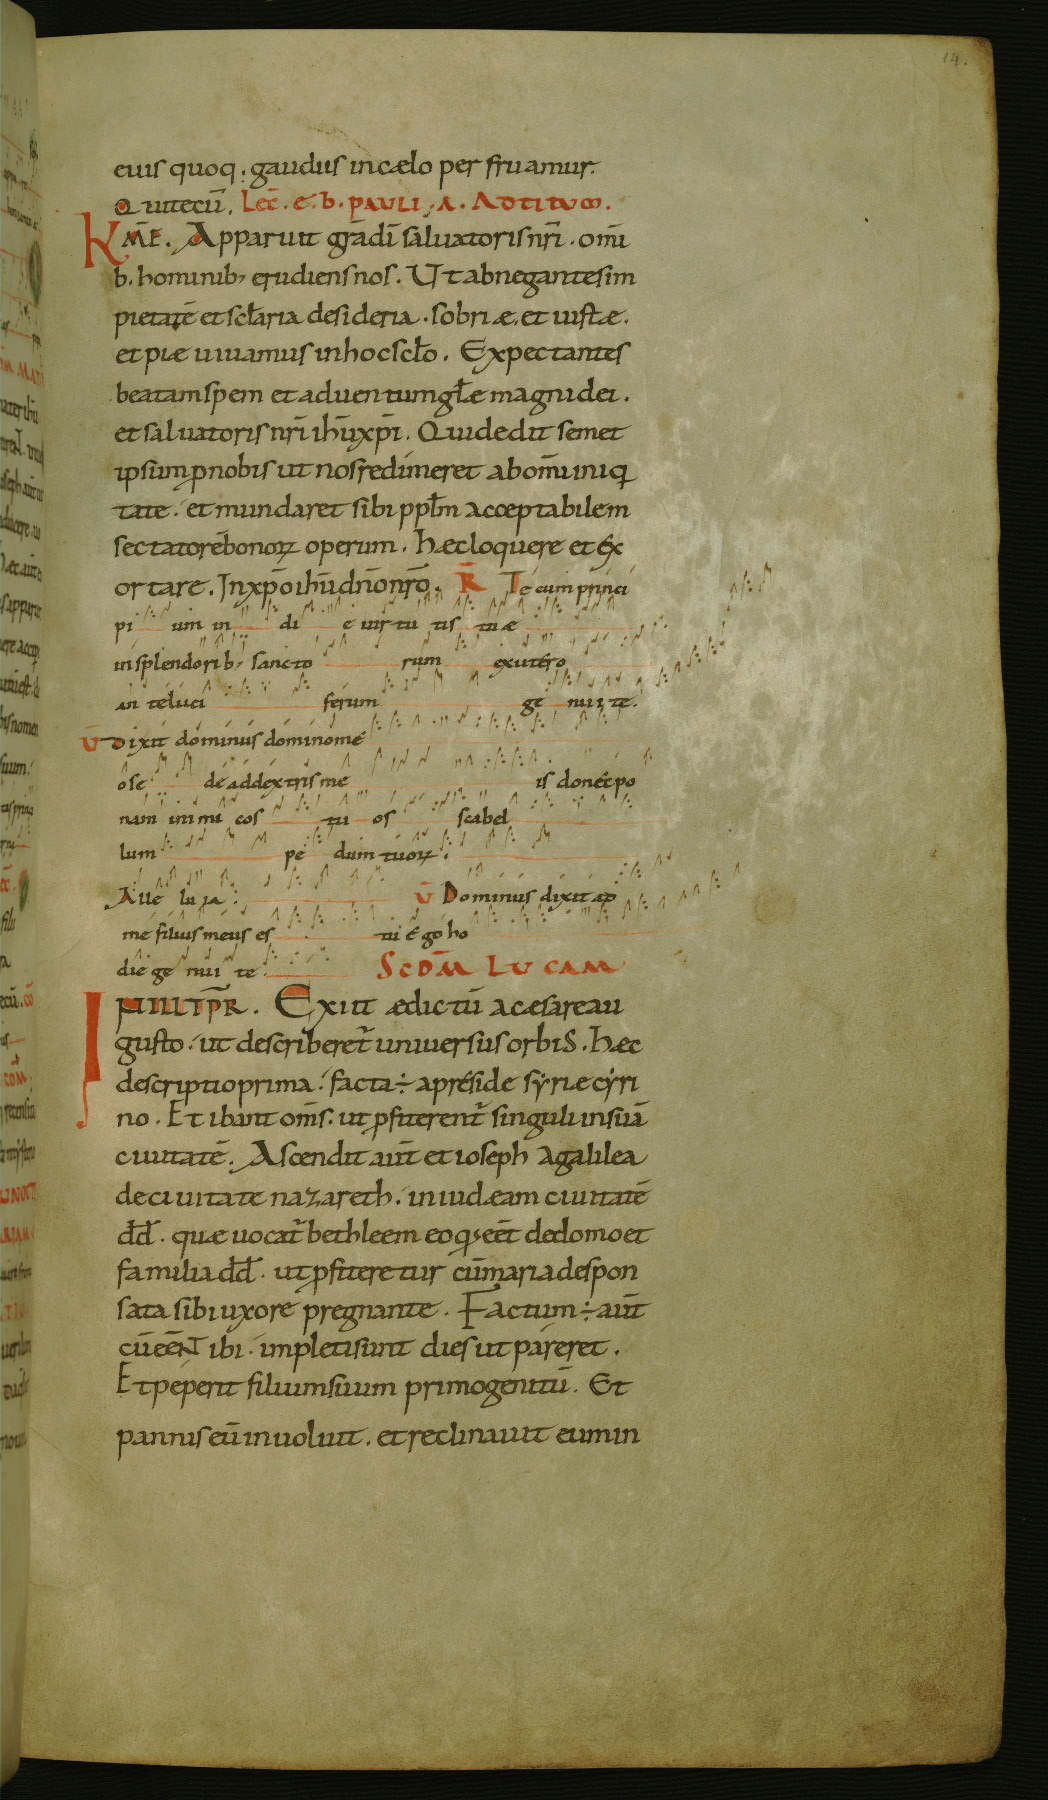 14.
eius quoq; gaudiis in cælo per fruamur.
Qui tecū. Lec̄. e. b. PAULI. A. AD TITUM.
KME. Apparuit gr̄a dī saluatoris nr̄i. omi
b. hominib; erudiens nos. Ut abnegantes im
pietatē et scłaria desideria. sobriæ. et iustæ.
et piæ uiuamus in hoc scło. Expectantes
beatam spem et aduentum głæ magni dei.
et saluatoris nr̄i ihū xpī. Qui dedit semet
ipsum p nobis ut nos redimeret ab om̄i iniqi
tate. et mundaret sibi ppłm acceptabilem
sectatorē bonoꝝ operum. Hæc loquere et ex
ortare. In xpō ihū dn̄o nr̄o. R̄ Tecum princi
pi um in di e uir tu tis tuæ
in splendorib; sancto rum ex utero
an te luci ferum ge nui te.
V̄ Dixit dominus domino me
o se de ad dextris me is donec po
nam inimi cos tu os scabel
lum pe dum tuoꝝ.
Alle lu ia. V̄ Dominus dixit ad
me filius meus es tu ego ho
die ge nui te. SCDM LUCAM
IN ILL TPR. Exiit ædictū a cæsare au
gusto. ut describeret̄ uniuersus orbis. Hæc
descriptio prima. facta ÷ a preside syriæ cyri
no. Et ibant om̄s. ut p̱fiterent̄ singuli in suā
ciuitatē. Ascendit aut̄ et ioseph a galilea
de ciuitate nazareth. in iudæam ciuitatē
dd̄. quæ uocat̄ bethleem eo q; eēt de domo et
familia dd̄. ut p̱fiteretur cū maria despon
sata sibi uxore pregnante. Factum ÷ aut̄
cū eēnt ibi. impleti sunt dies ut pareret.
Et peperit filium suum primogenitū. Et
pannis eū inuoluit. et reclinauit eum in